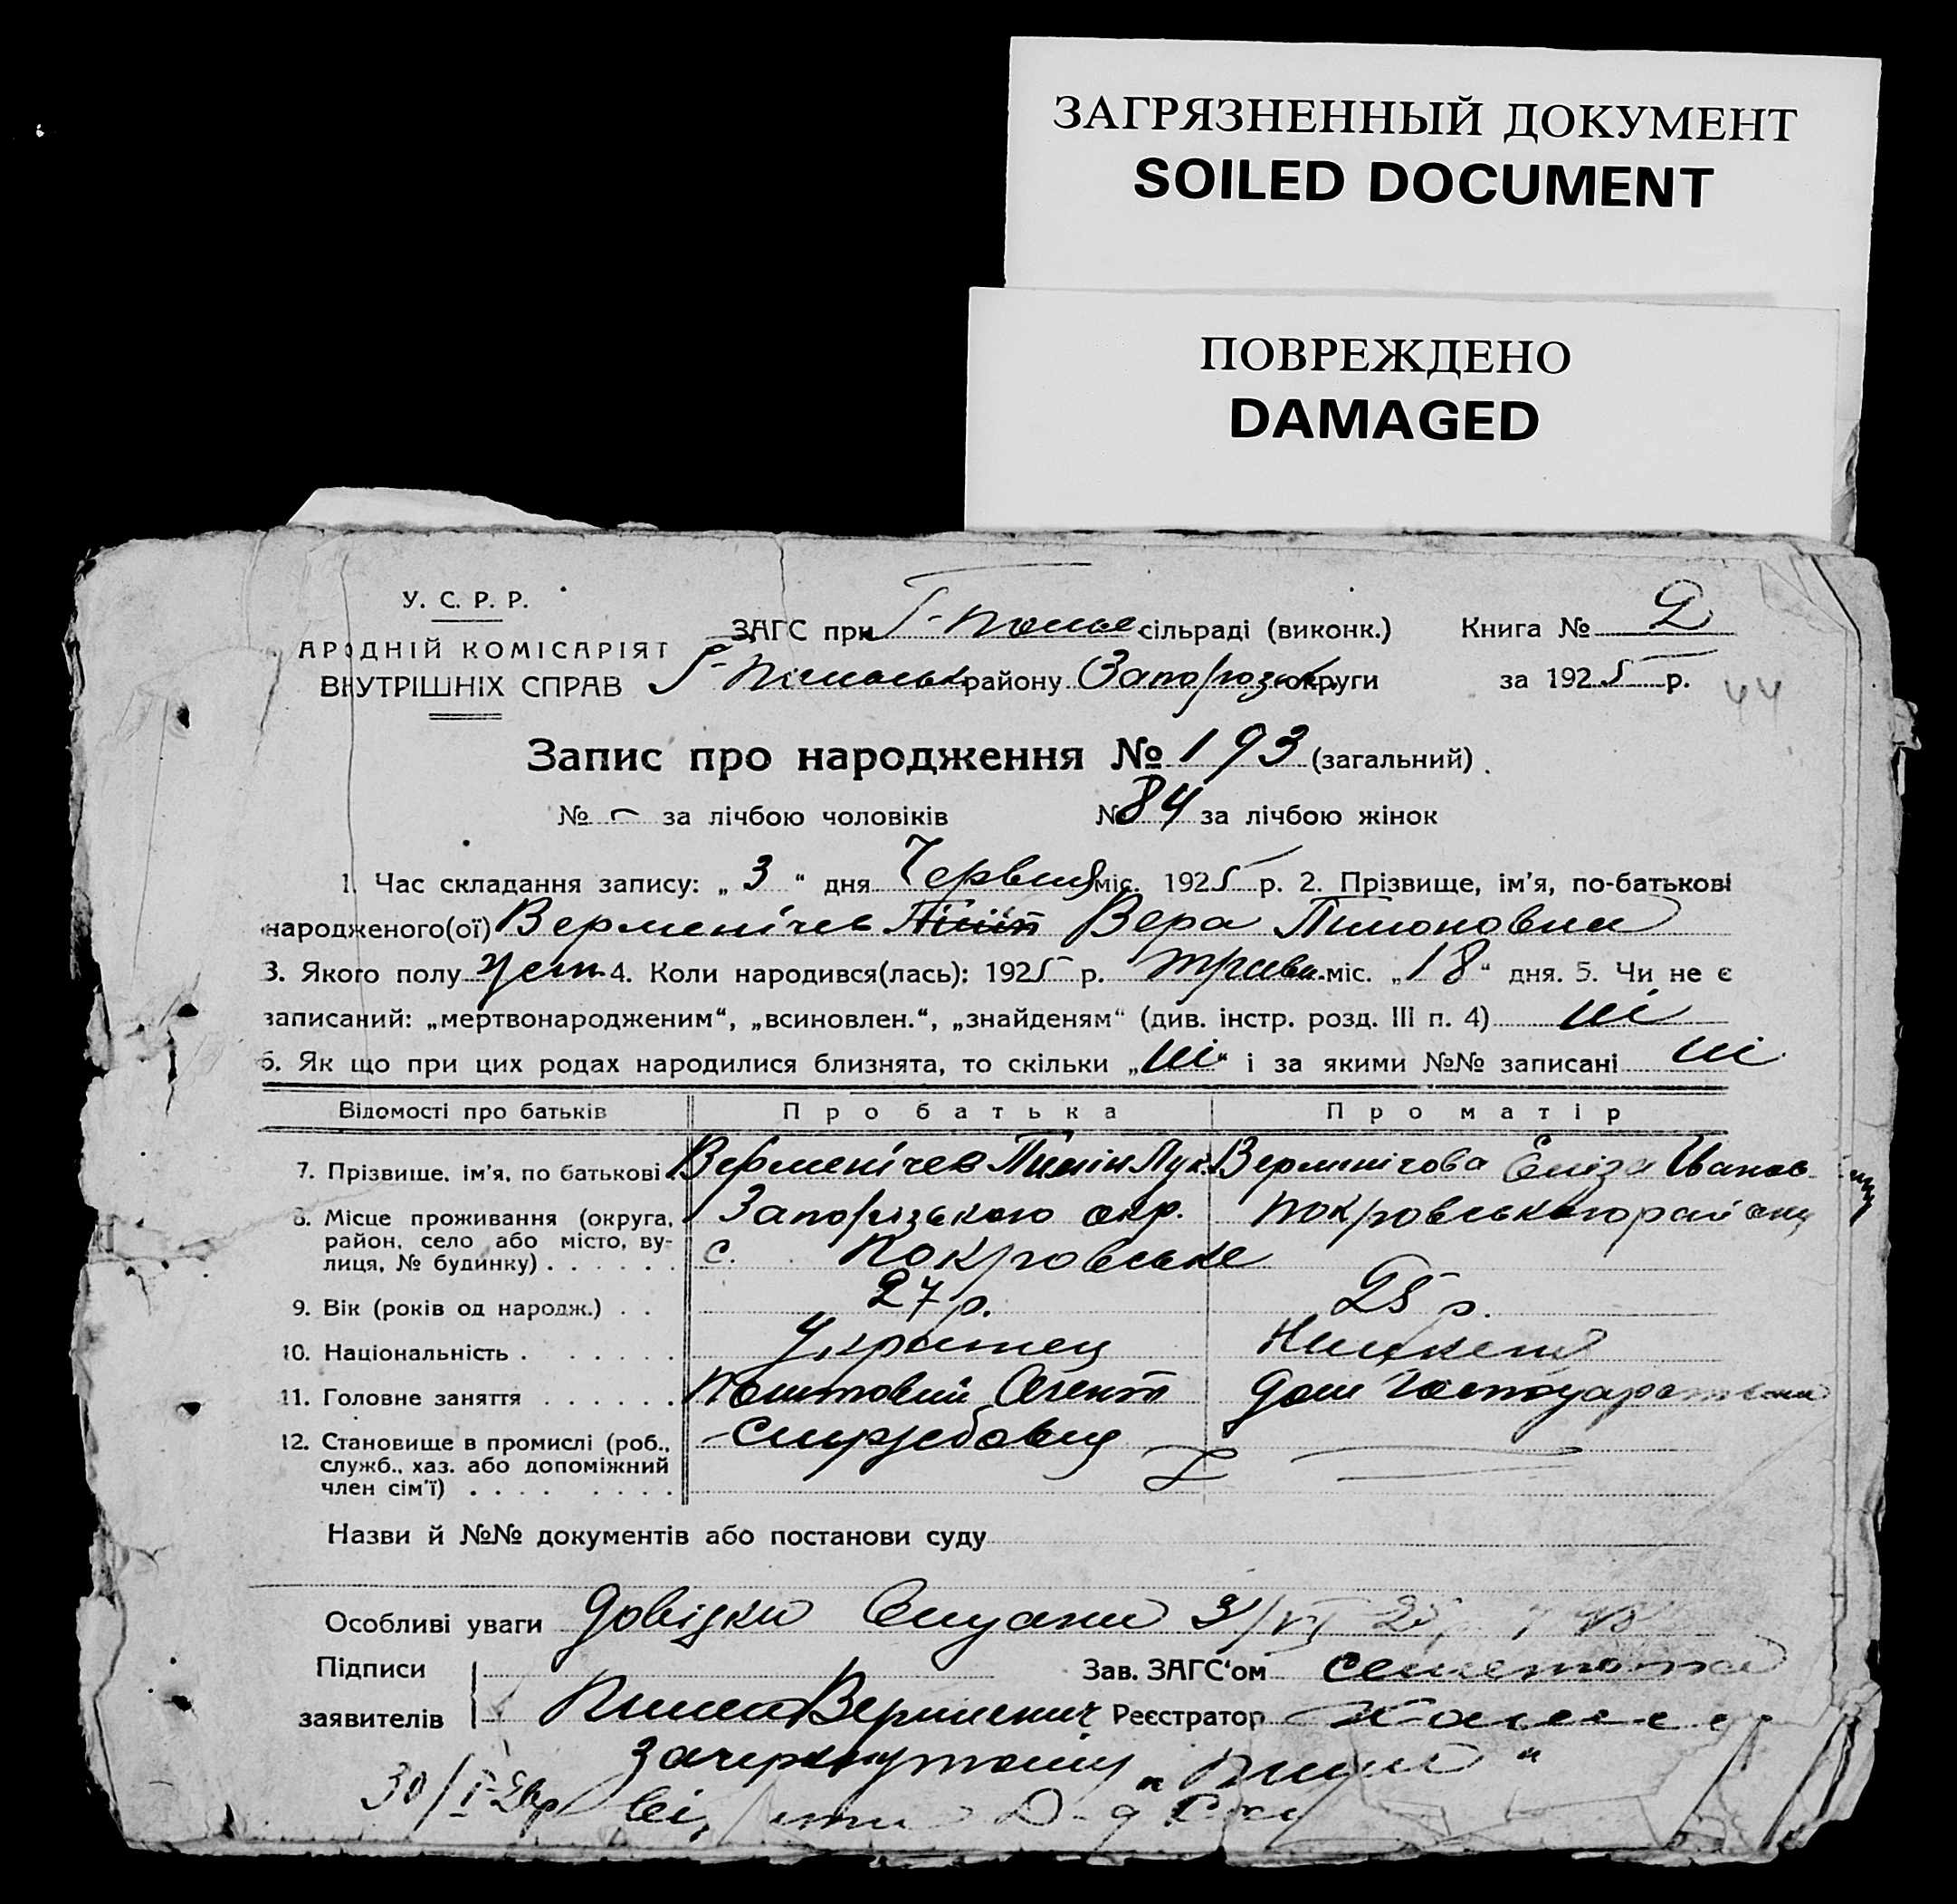 ЗАГРЯЗНЕННЫЙ ДОКУМЕНТ
SOILED DOCUMENT
ПОВРЕЖДЕНО
DAMAGED
У. С. Р. Р.
АРОДНІЙ КОМІСАРІЯТ
ВНУТРІШНІХ СПРАВ
ЗАГС при сільраді (виконк.) Книга № 2
району Запорізьк. округи за 1925 р. 44
Запис про народження № 193 (загальний)
№ - за лічбою чоловіків № 84 за лічбою жінок
1. Час складання запису: „ 3 “ дня Червня міс. 1925 р. 2. Прізвище, ім'я, по-батькові
народженого(ої) Верменічев Вера Пимоновна
3. Якого полу жен. 4. Коли народився(лась): 1925 р. трав. міс. „18“ дня. 5. Чи не є
записаний: „мертвонародженим“, „всиновлен.“, „знайденям“ (див. інстр. розд. III п. 4) ні
6. Як що при цих родах народилися близнята, то скільки „ні“ і за якими №№ записані ні
Відомості про батьків Про батька Про матір
7. Прізвище, ім'я, по батькові Верменічев Пимін Лук. Верменічова Еліза Іванов
8. Місце проживання (округа, район, село або місто, вулиця, № будинку) Запорізького окр. Покровського району
с. Покровське
9. Вік (років од народж.) 27 р. 25 р.
10. Національність Украінец Німкеня
11. Головне заняття Поштовий Агент Дом Господарством
12. Становище в промислі (роб., служб., хаз. або допоміжний член сім'ї) Службовец
Назви й №№ документів або постанови суду
Особливі уваги Довідки 3/VI 25
Підписи заявителів Зав. ЗАГС'ом
Верменич Реєстратор
зачеркнутому
30/I-26р